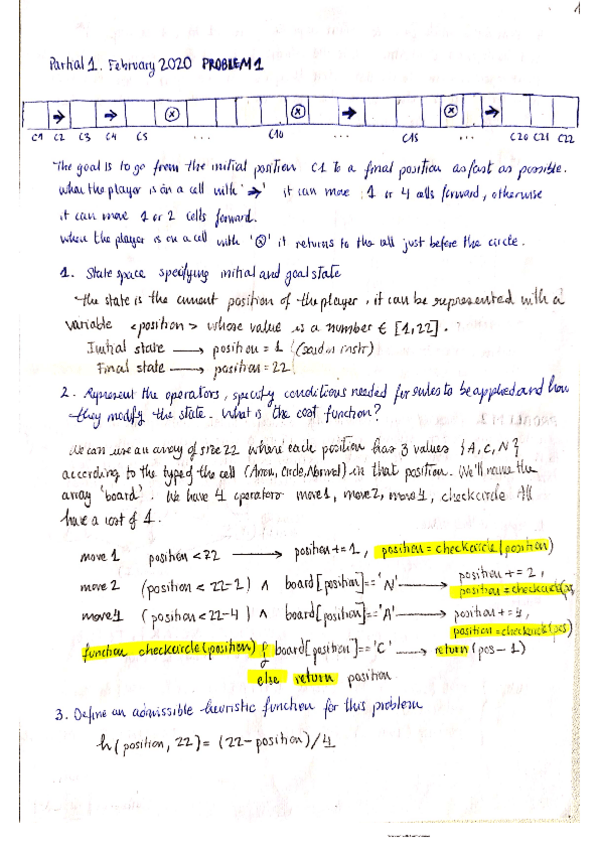 1
Partial 1. February 2020 PROBLEM 1
C1 C2 C3 C4 C5 ... C10 ... C15 ... C20 C21 C22
The goal is to go from the initial position C1 to a final position as fast as possible.
When the player is on a cell with '→' it can move 1 or 4 cells forward, otherwise
it can move 1 or 2 cells forward.
When the player is on a cell with 'ⓧ' it returns to the cell just before the circle.
1. State space specifying initial and goal state
The state is the current position of the player, it can be represented with a
variable <position> whose value is a number ∈ [1,22].
Initial state → position = 1 (said in instr)
Final state → position = 22
2. Represent the operators, specify conditions needed for rules to be applied and how
they modify the state. What is the cost function?
We can use an array of size 22 where each position has 3 values {A, C, N}
according to the type of the cell (Arrow, Circle, Normal) in that position. We'll name the
array 'board'. We have 4 operators move1, move2, move4, checkcircle All
have a cost of 1.
move 1 position < 22 → position += 1, position = checkcircle(position)
move 2 (position < 22-2) ∧ board[position]=='N' → position += 2, position = checkcircle(pos
move4 (position < 22-4) ∧ board[position]=='A' → position += 4, position = checkcircle(pos)
function checkcircle(position) if board[position]=='C' → return (pos - 1)
else return position
3. Define an admissible heuristic function for this problem
h(position, 22) = (22-position)/4